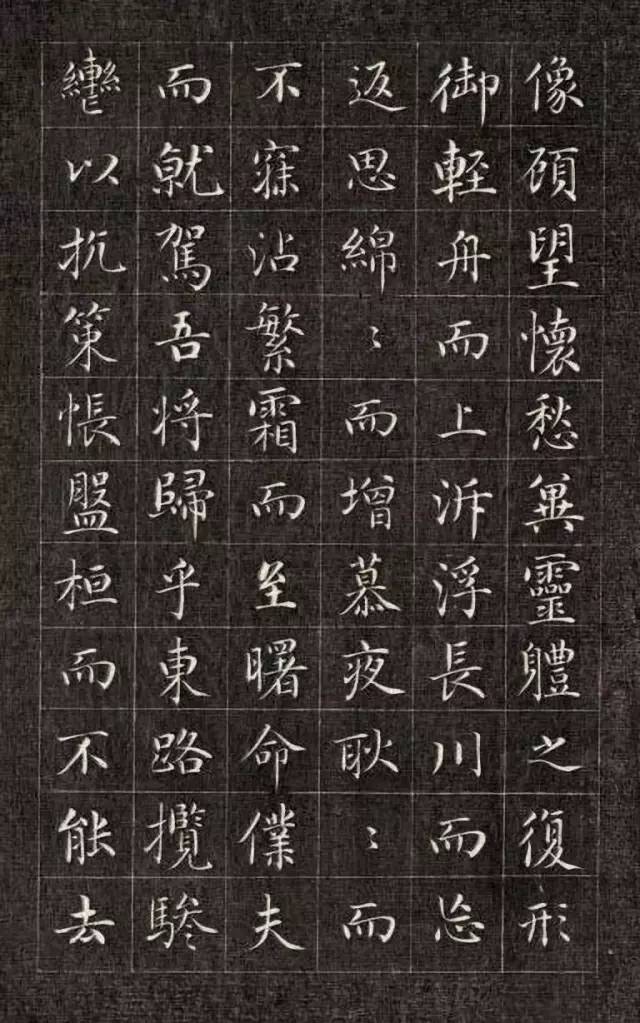 像頋望懷愁冀靈體之復形
御輕舟而上泝浮長川而忘
返思綿〻而增慕夜耿〻而
不寐沾繁霜而至曙命僕夫
而就駕吾将歸乎東路攬驂
轡以抗策悵盤桓而不能去